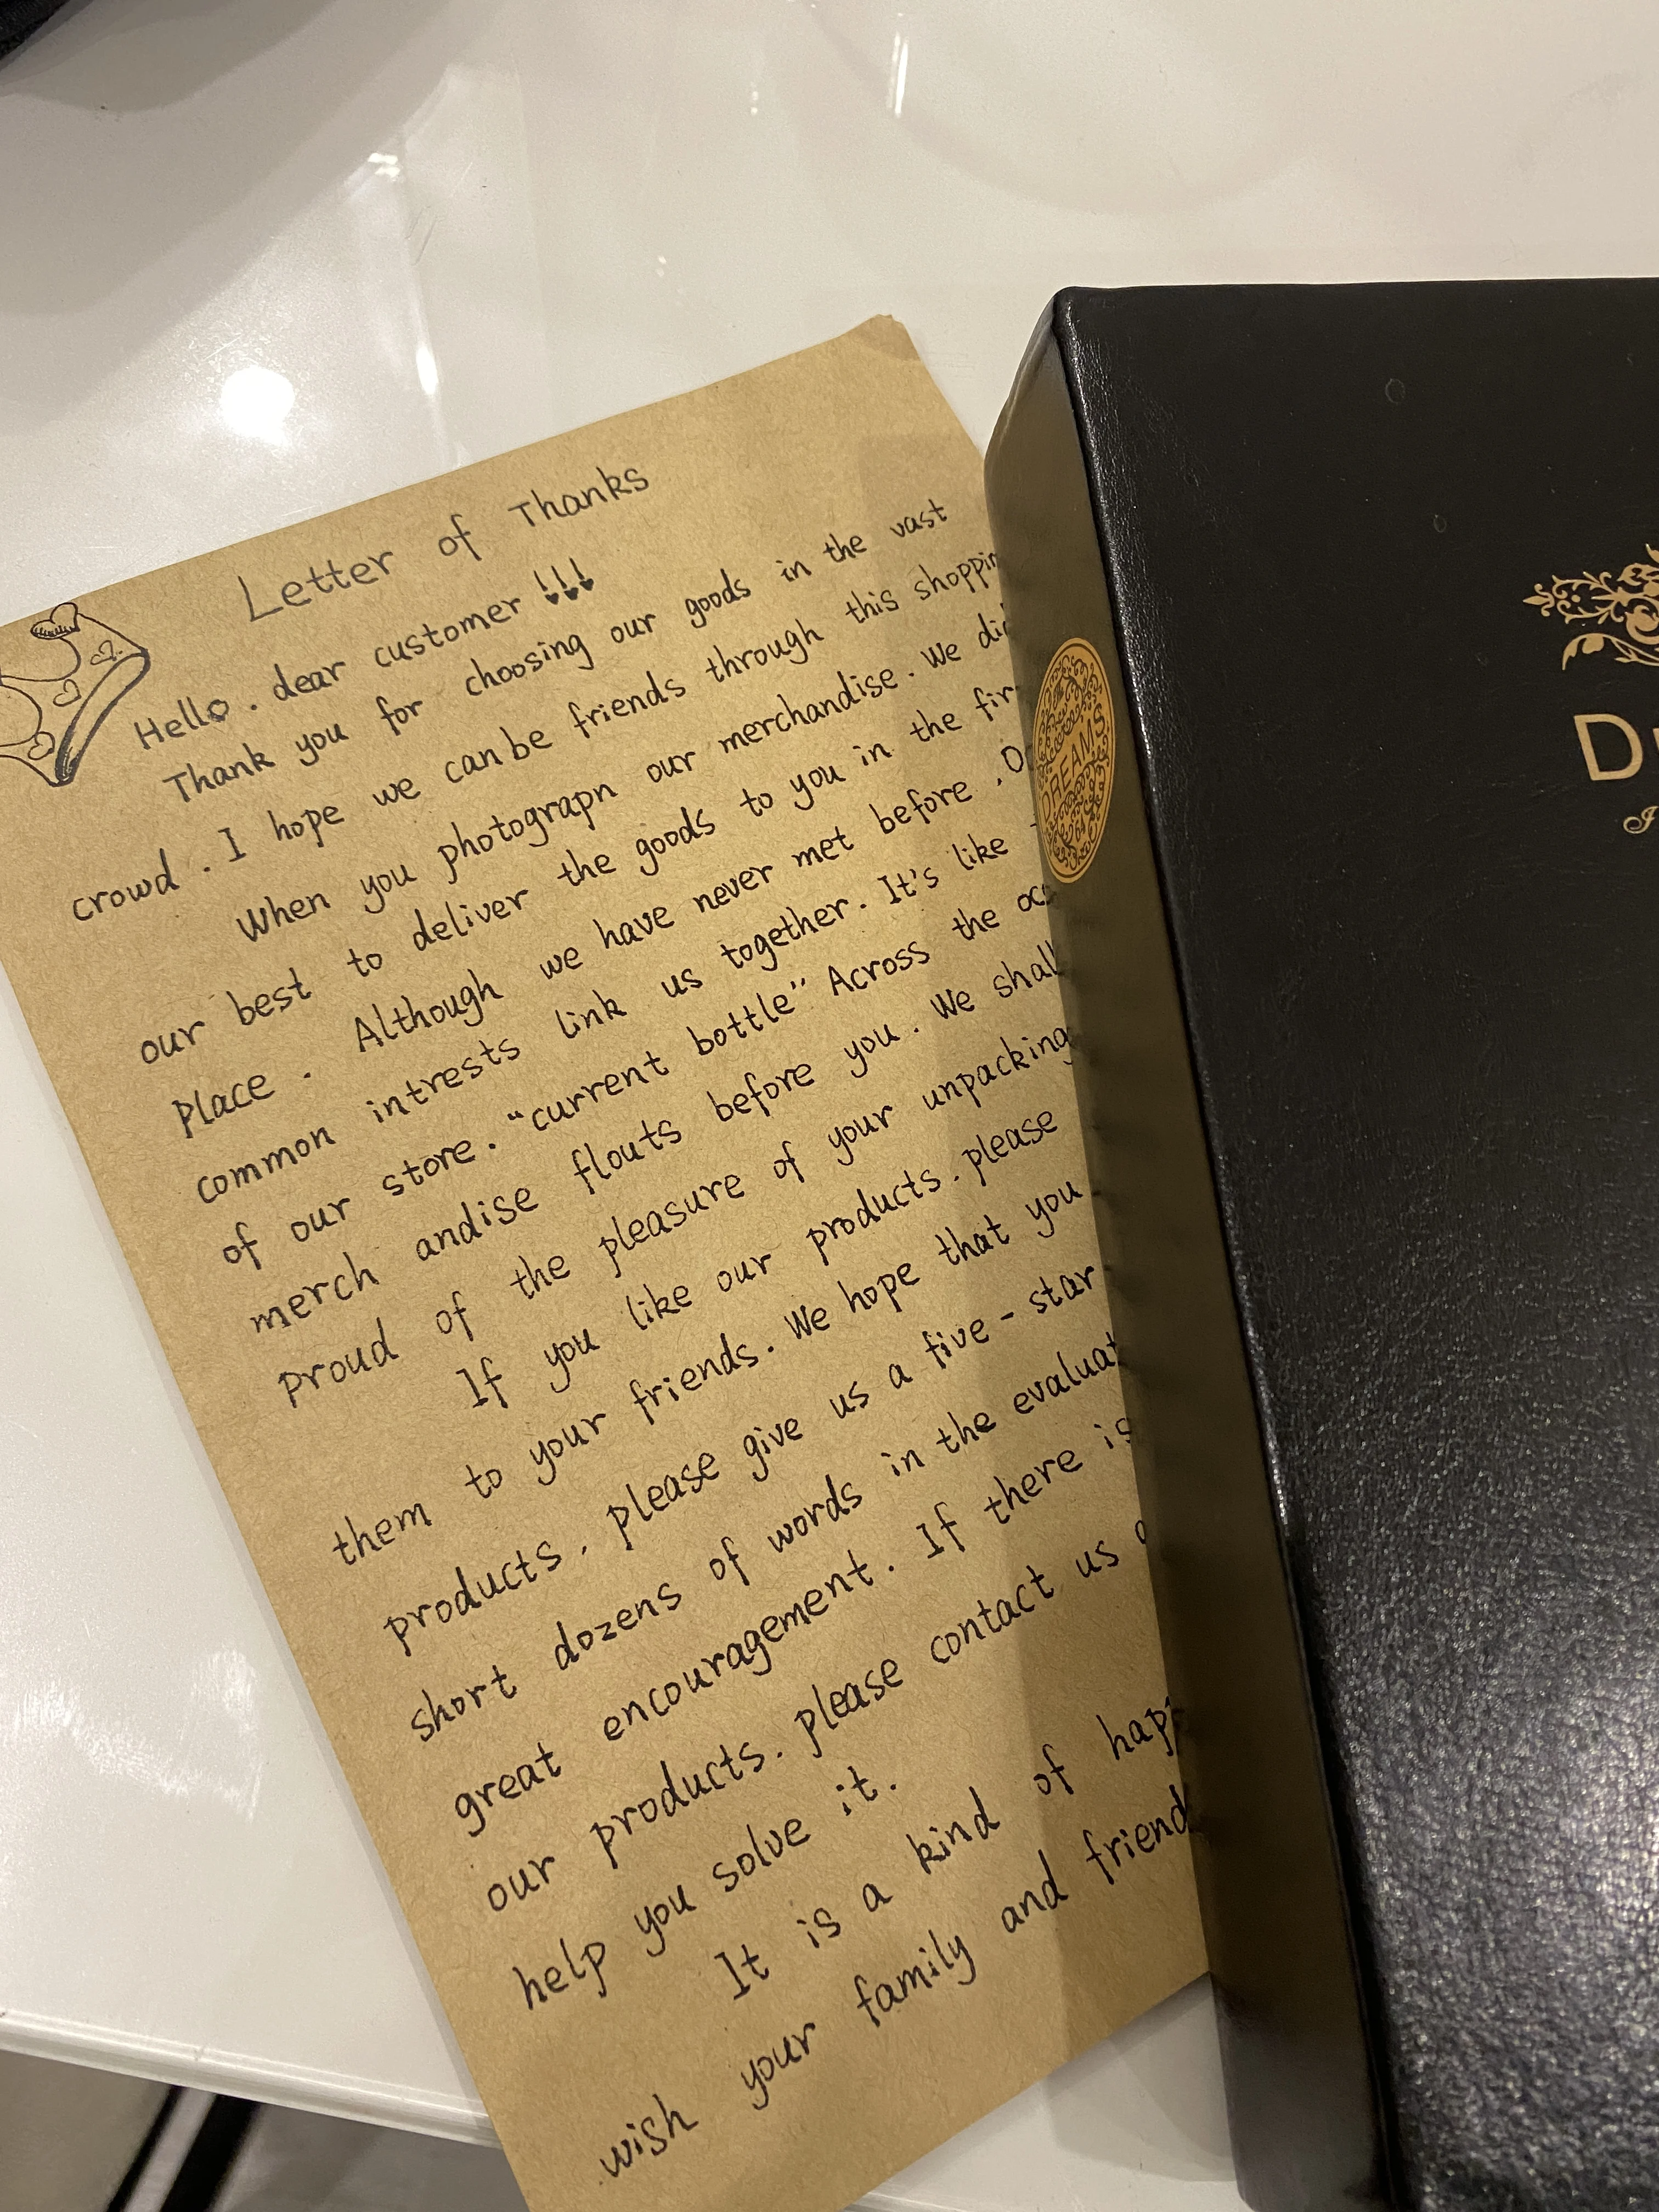 Letter of Thanks
Hello. dear customer !!!
Thank you for choosing our goods in the vast
crowd. I hope we can be friends through this shoppin
When you photograpn our merchandise. We did
our best to deliver the goods to you in the fir
place. Although we have never met before. O
common intrests link us together. It's like
of our store. "current bottle" Across the oce
merch andise flouts before you. We shall
proud of the pleasure of your unpacking
If you like our products. please
them to your friends. We hope that you
products. please give us a five-star
short dozens of words in the evaluat
great encouragement. If there is
our products. please contact us a
help you solve it.
It is a kind of happ
wish your family and friend
DREAMS
D